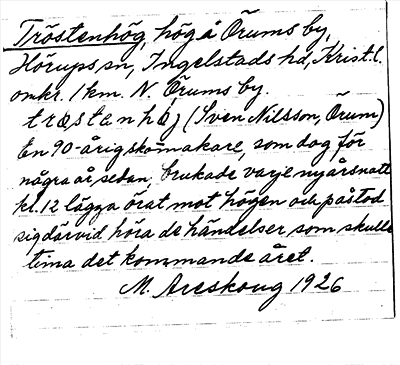 Tröstenhög, hög å Örums by,
Hörups sn, Ingelstads hd, Krist. l.
omkr. 1 km. N. Örums by.
trøstanhøj (Sven Nilsson, Örum)
En 90-årig skomakare, som dog för
några år sedan, brukade varje nyårsnatt
kl. 12 lägga örat mot högen och påstod
sig därvid höra de händelser, som skulle
tima det kommande året.
M. Areskoug 1926